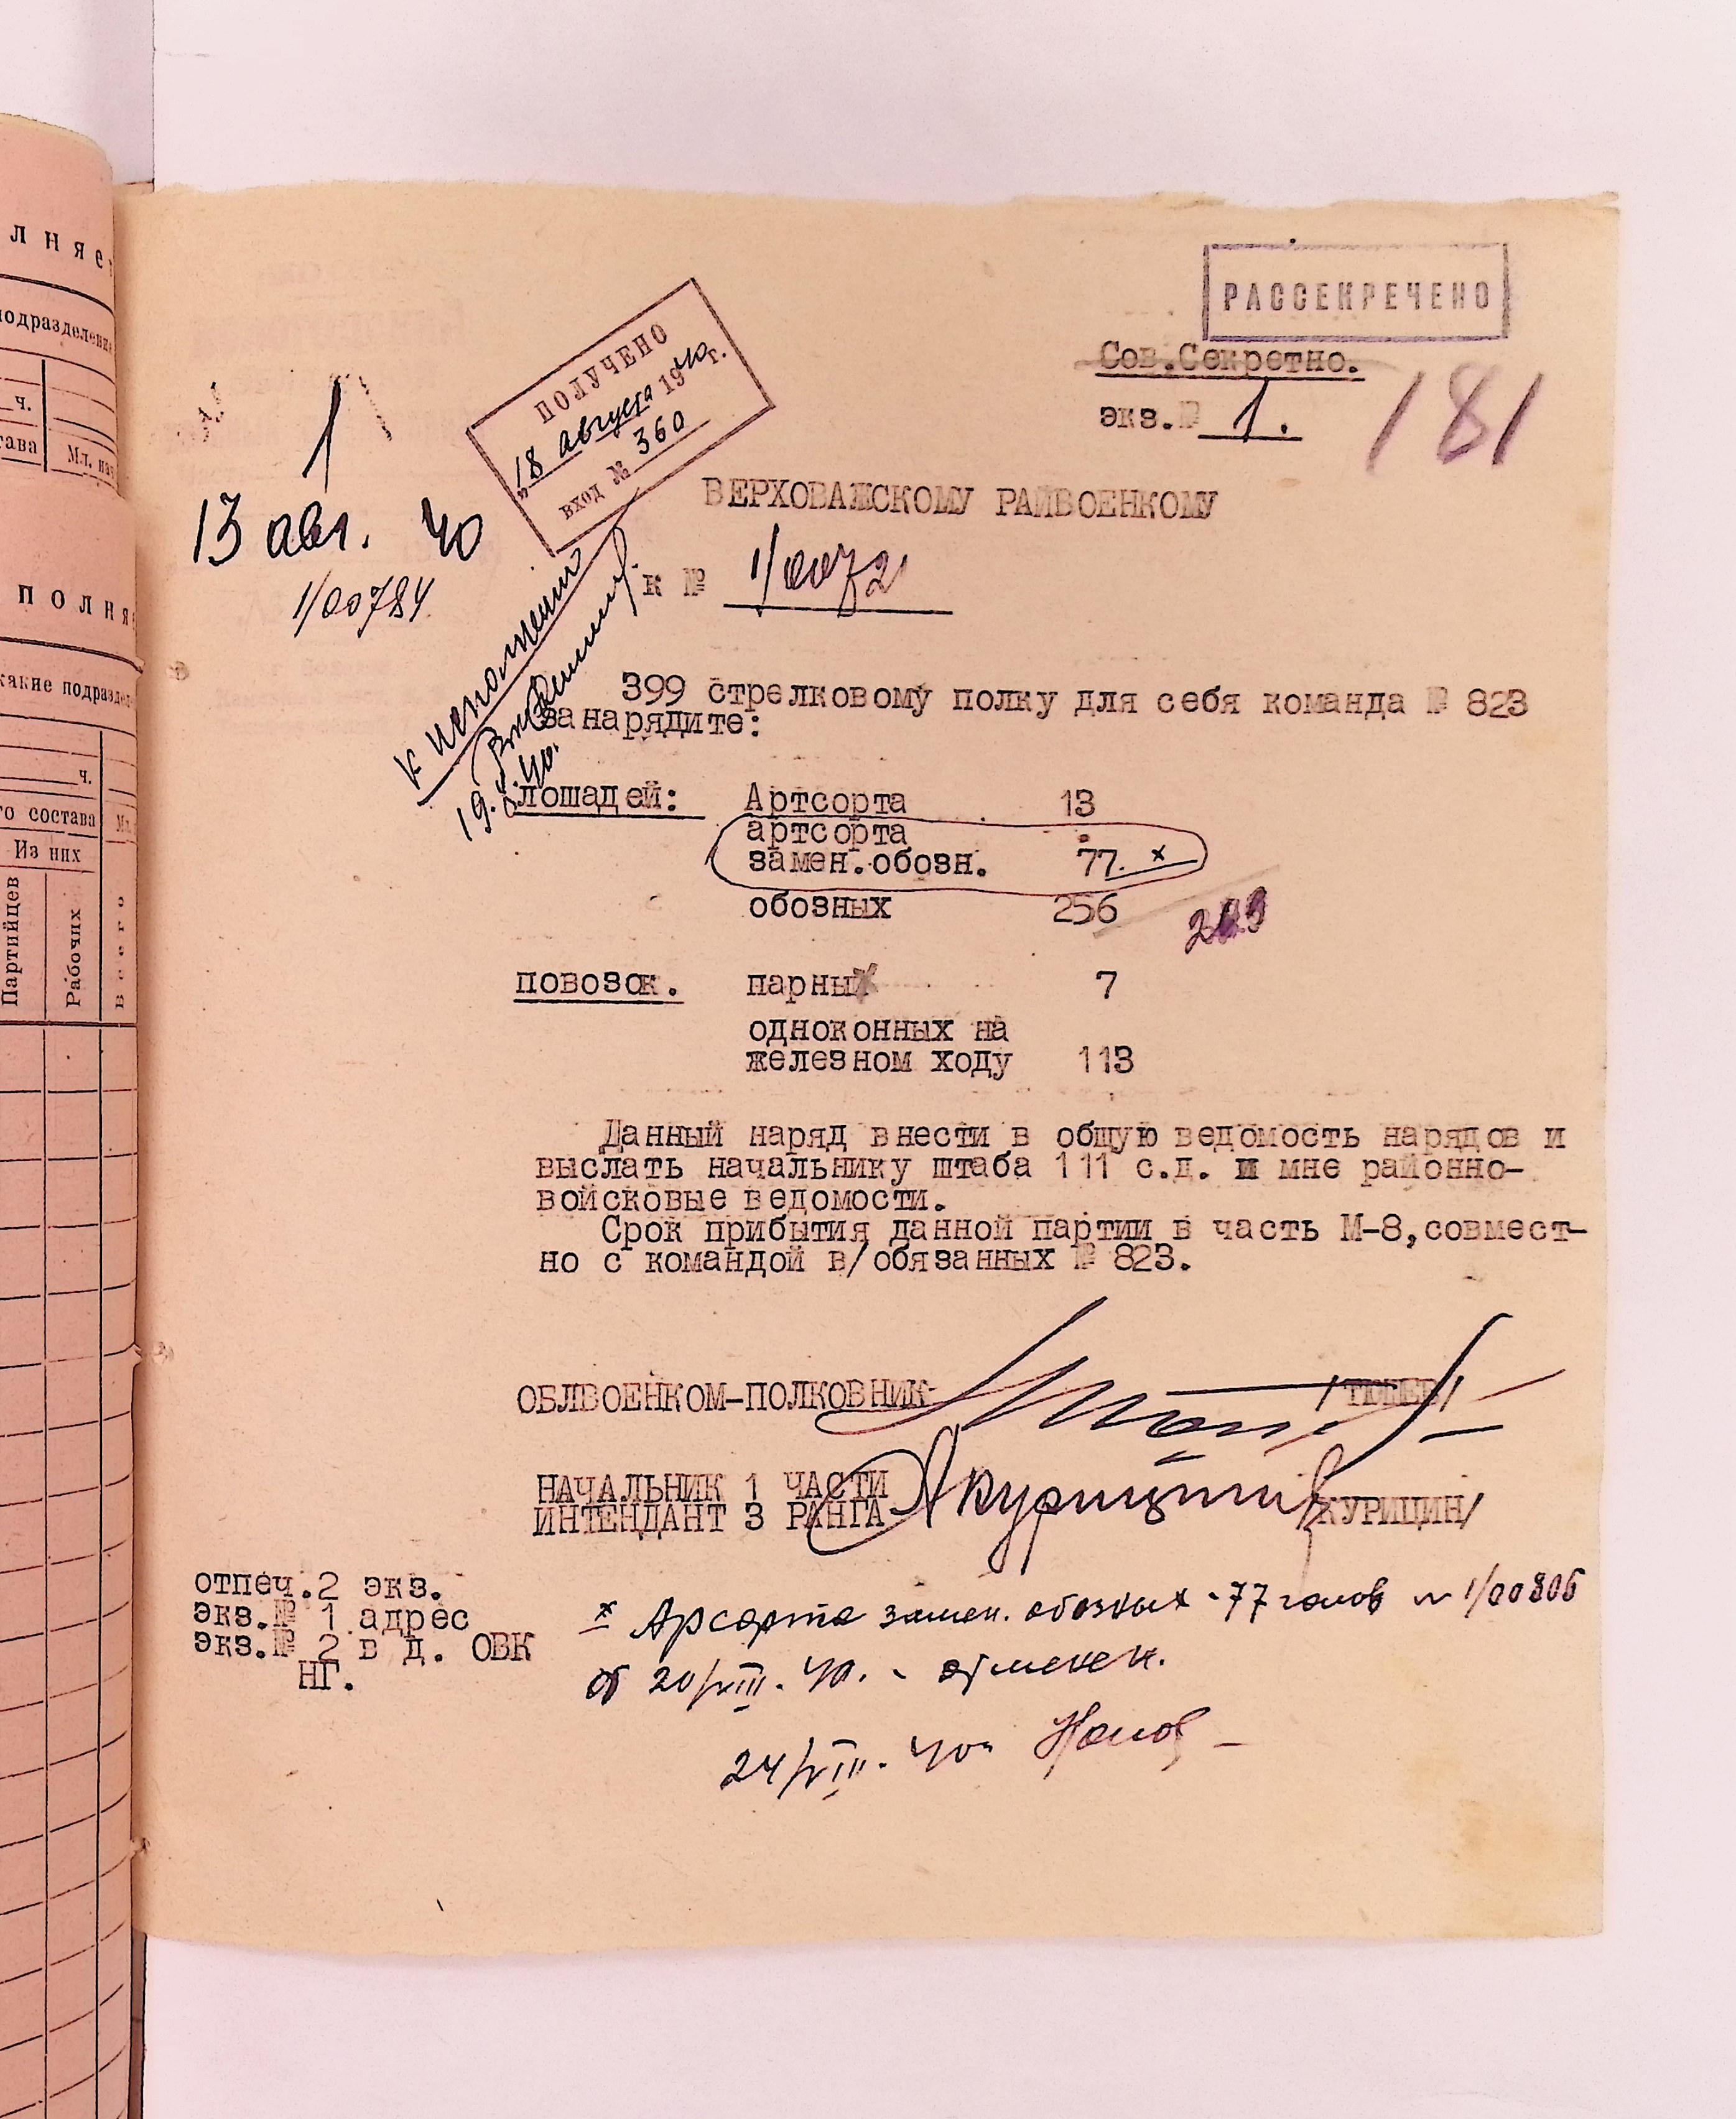 лняе
подразделени
ч.
тава
Мл. нач
полня
какие подраздел
ч.
го состава
Из них
Партийцев
Рабочих
Всего
РАССЕКРЕЧЕНО
Сов.Секретно.
экз.№ 1.
181
ПОЛУЧЕНО
"18 августа 1940 г.
вход № 360
1
13 авг. 40
1/00784
ВЕРХОВАЖСКОМУ РАЙВОЕНКОМУ
к № 1/0072
к исполнению
19.8.40.
399 стрелковому полку для себя команда № 823
занарядите:
лошадей: Артсорта 13
артсорта
замен.обозн. 77. х
обозных 256
повозок. парных 7
одноконных на
железном ходу 113
Данный наряд внести в общую ведомость нарядов и
выслать начальнику штаба 111 с.д. и мне районно-
войсковые ведомости.
Срок прибытия данной партии в часть М-8,совмест-
но с командой в/обязанных № 823.
ОБЛВОЕНКОМ-ПОЛКОВНИК
НАЧАЛЬНИК 1 ЧАСТИ
ИНТЕНДАНТ 3 РАНГА Якурицин /КУРИЦИН/
отпеч.2 экз.
экз.№ 1 адрес
экз.№ 2 в д. ОВК
НГ.
х Арсорта замен. обозных - 77 голов № 1/00806
от 20/VIII. 40. - отменен.
24/VIII. 40г